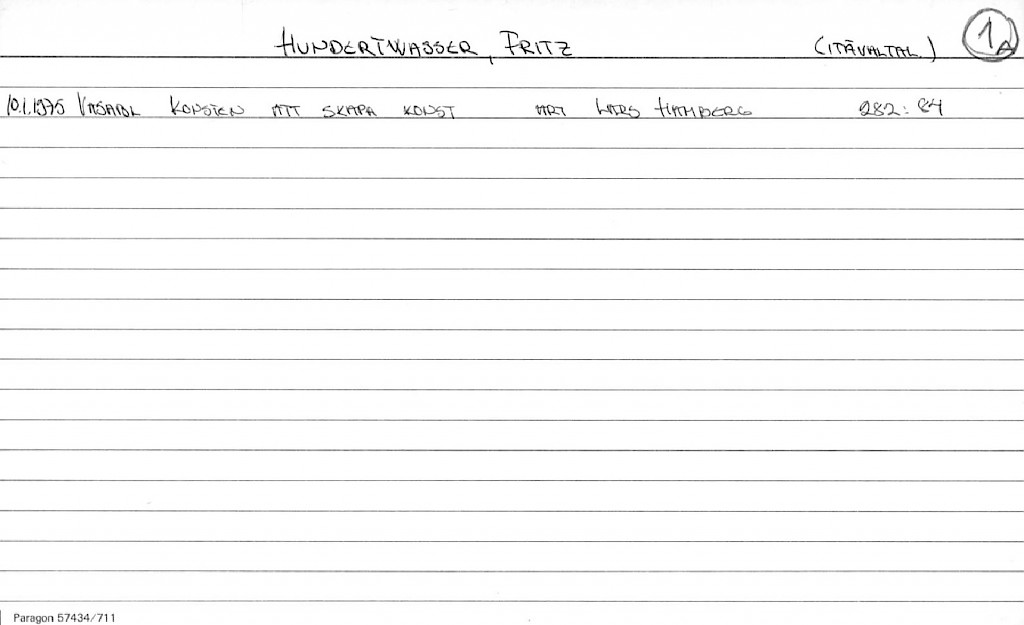 HUNDERTWASSER, FRITZ (ITÄVALTAL.) 1A
10.1.1975 VASABL KONSTEN ATT SKAPA KONST ART LARS HAMBERG 282:84
Paragon 57434/711